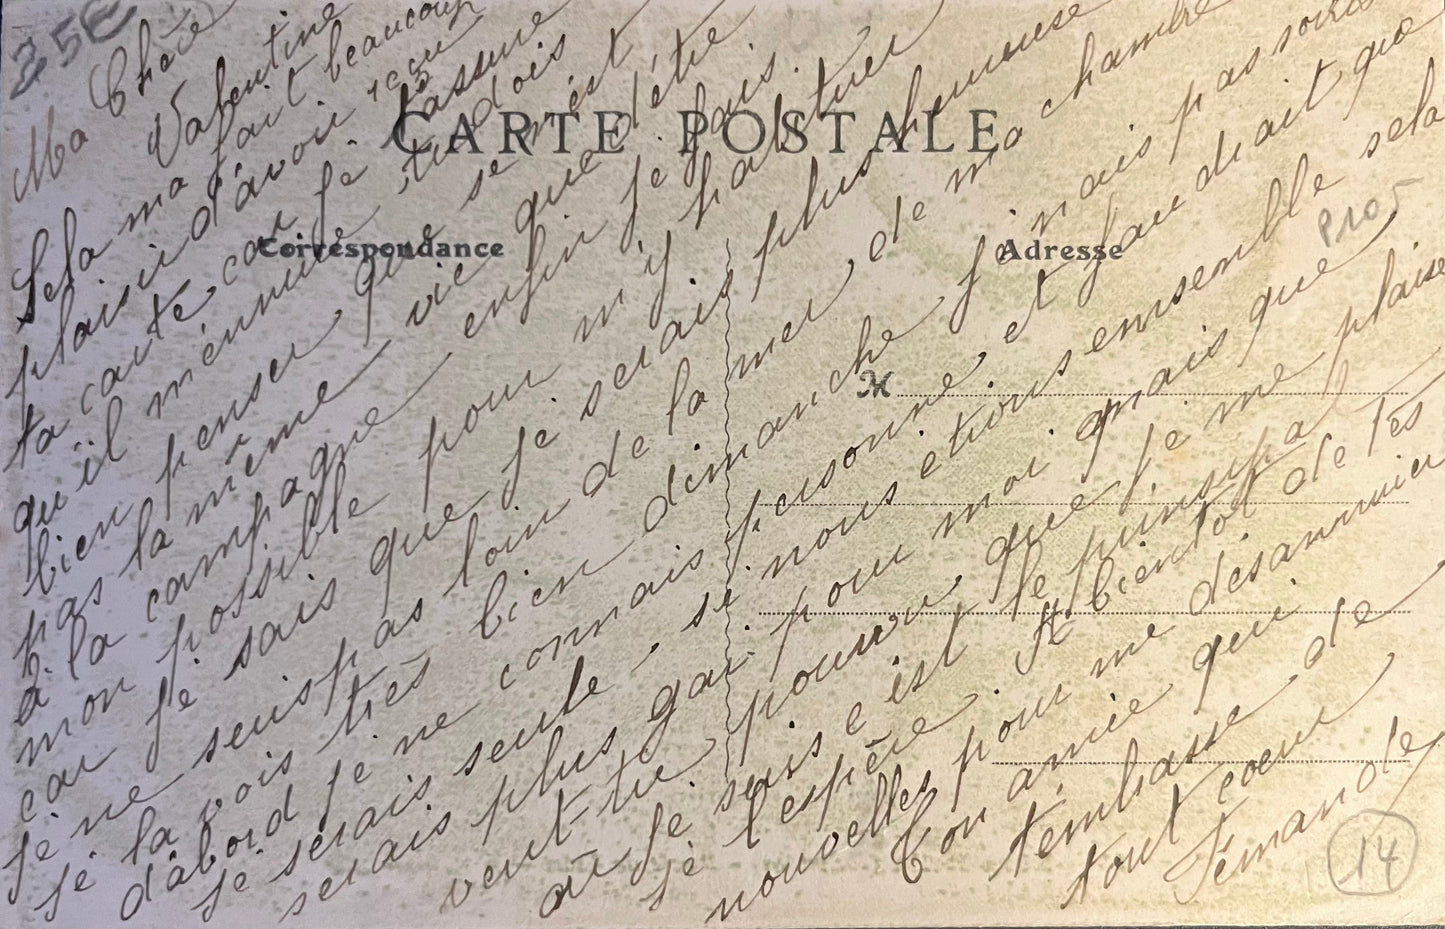 35€
CARTE POSTALE
Correspondance
Adresse
M
Prof
14
Ma Chère
Valentine
Sela ma fait beaucoup
plaisir d'avoir reçu
ta carte, car je t'assure
qu'il m'ennuie, tu dois
bien penser que se n'est
pas la même vie que d'être
à la campagne enfin je fais
mon possible pour m'y habituer
car je sais que je serais plus heureuse
je ne suis pas loin de la mer, de ma chambre
je la vois très bien dimanche je nais pas sorti
d'abord je ne connais personne, et faudrait que
je serais seule, si nous etions ensemble sela
serais plus gai pour moi mais que
veut-tu, pourvu que je me plaise
où je suis c'est le principal
je l'espère. A bientot de tes
nouvelles pour me désannuier
Ton amie qui
t'embrasse de
tout coeur
Fernande